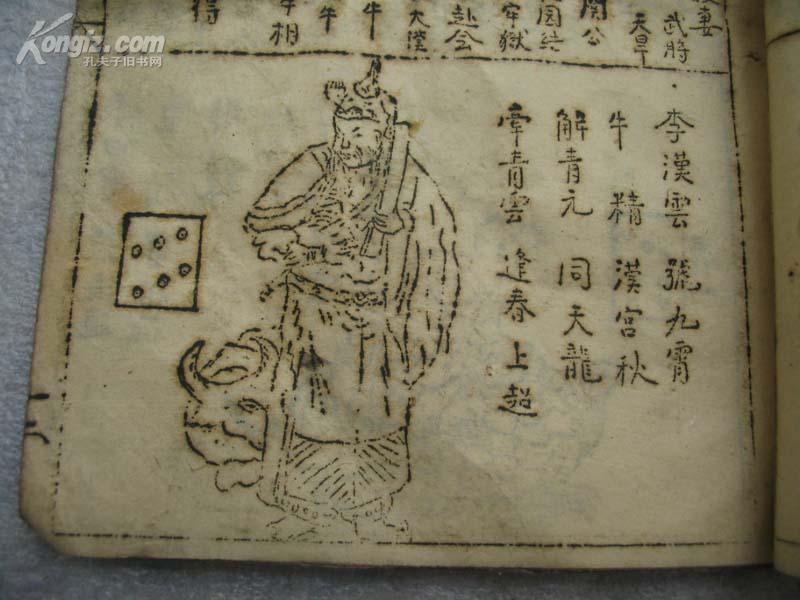 妻
武將
天旱
関公
園結
牢獄
赴会
大墜
牛
牛
牛相
得
李漢雲 號九霄
牛精 漢宮秋
解青元 同天龍
牵青雲 逢春上超
Kongfz.com
孔夫子旧书网